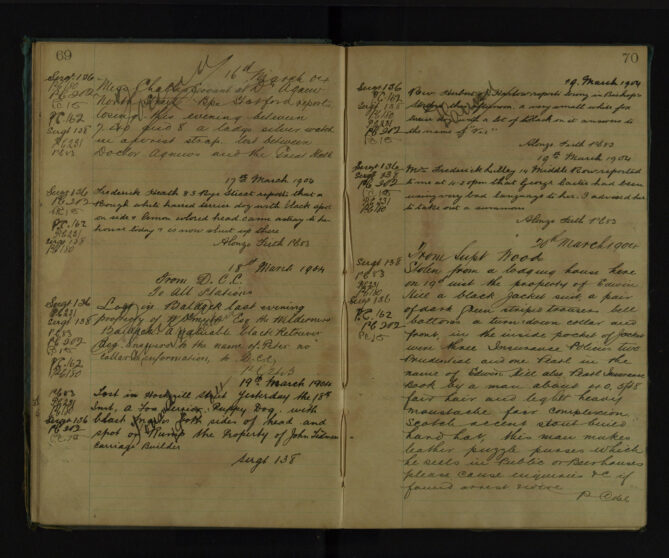 69
16th March 04
Sergt 136
PC 202
PC 15
PC 162
Sergt 138
PC 231
PC 53
Miss servant at Dr Agnew
North Bps Stortford reports
losing this evening between
7.40 and 8 a ladys silver watch
in a wrist strap. lost between
Doctor Agnews and the Great
17th March 1904
Sergt 136
PC 202
PC 15
PC 162
PC 231
Sergt 138
PC 180
Frederick Heath 83 Rye Street reports that a
Rough white haired dog with black spot
on side & lemon colored head came astray to his
house today & is now shut up there
Alonzo Frith PC 53
18th March 1904
From D.C.C.
To All Stations
Sergt 136
PC 231
Sergt 138
PC 53
PC 202
PC 15
PC 162
PC 180
Lost in last evening
property of Esq
a valuable black Retriever
dog. answered to the name of Peter no
collar information to D.C.C.
19th March 1904
PC 53
PC 231
PC 180
Sergt 136
PC 202
PC 15
Lost in Hockerill Street Yesterday the 18th
Inst, a Fox Terrier Puppy Dog, with
black both sides of head and
spot on Rump the Property of John
Carriage Builder
Sergt 138
70
19. March 1904
Sergt 136
PC 162
Sergt 138
PC 15
PC 231
PC 202
Rev Herbert Harlow reports losing in Bishops
Stortford this afternoon, a very small white fox
terrier dog with a bit of black on it answers to
the name of
Alonzo Frith PC 53
19th March 1904
Sergt 136
Sergt 138
PC 202
PC 15
PC 162
PC 231
PC 180
Mr Frederick Lilley 14 Middle Row reported
to me at 4.20 pm that George had been
using very bad language to her. I advised her
to take out a summons
Alonzo Frith PC 53
20th March 1904
From Supt Wood
Sergt 138
PC 53
PC 231
PC 180
Sergt 136
PC 162
PC 202
PC 15
Stolen from a lodging house here
on 19th inst the property of Edwin
Hill a black Jacket suit a pair
of dark green striped trousers bell
bottoms a turn down collar and
front in the inside pocket of Jacket
were three Insurance Policies two
Prudential and one Pearl in the
name of Edwin Hill also Pearl Insurance
book by a man about 40. 5ft 8
fair hair and light heavy
moustache fair complexion
Scotch accent stout build
hard hat, this man makes
leather puzzle purses which
he sells in Public or Beerhouses
please cause enquiries &c if
found arrest & wire